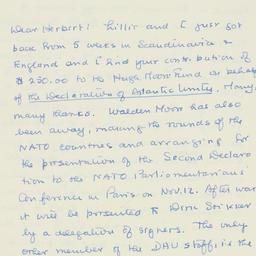 Dear Herbert: Lillie and I just got
back from 5 weeks in Scandinavia &
England and I find your contribution of
$ 250.00 to the Hugh Moore Fund on behalf
of the Declaration of Atlantic Unity. Many,
many thanks. Walden Moore has also
been away, making the rounds of the
NATO countries and arranging for
the presentation of the Second Declara
tion to the NATO Parliamentarians'
Conference in Paris on Nov. 12. After wards
it will be presented to Dirk Stikker
by a delegation of signers. The only
other member of the DAU staff, is the